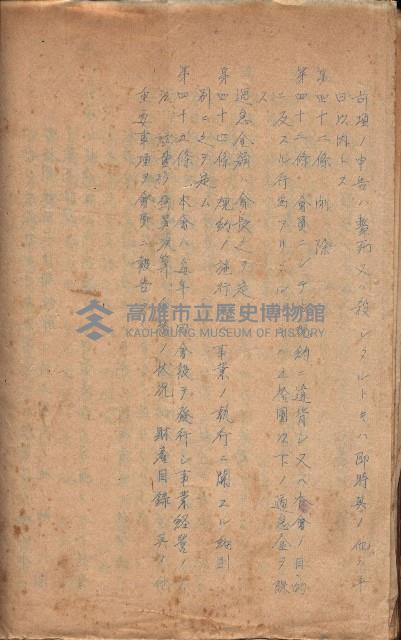 前項ノ申告ハ整列又ハ殺シタルトキハ即時其ノ他ハ半
日以内トス
第四十二條 削除
第四十三條 會員ニシテ規約ニ違背シ又ハ本會ノ目的
ニ反スル行為アリタル 五拾圓以下ノ過怠金ヲ課
ス
過怠金額ハ會長之ヲ定
第四十四條 規約ノ施行 事業ノ執行ニ關スル細則
別ニ之ヲ定ム
第四十五條 本會ハ毎年一回會報ヲ發行シ事業經營ノ
法、經費 決算、 ノ狀況、財產目錄其ノ他
重要事項ヲ會員ニ報告ス
高雄市立歷史博物館
KAOHSIUNG MUSEUM OF HISTORY